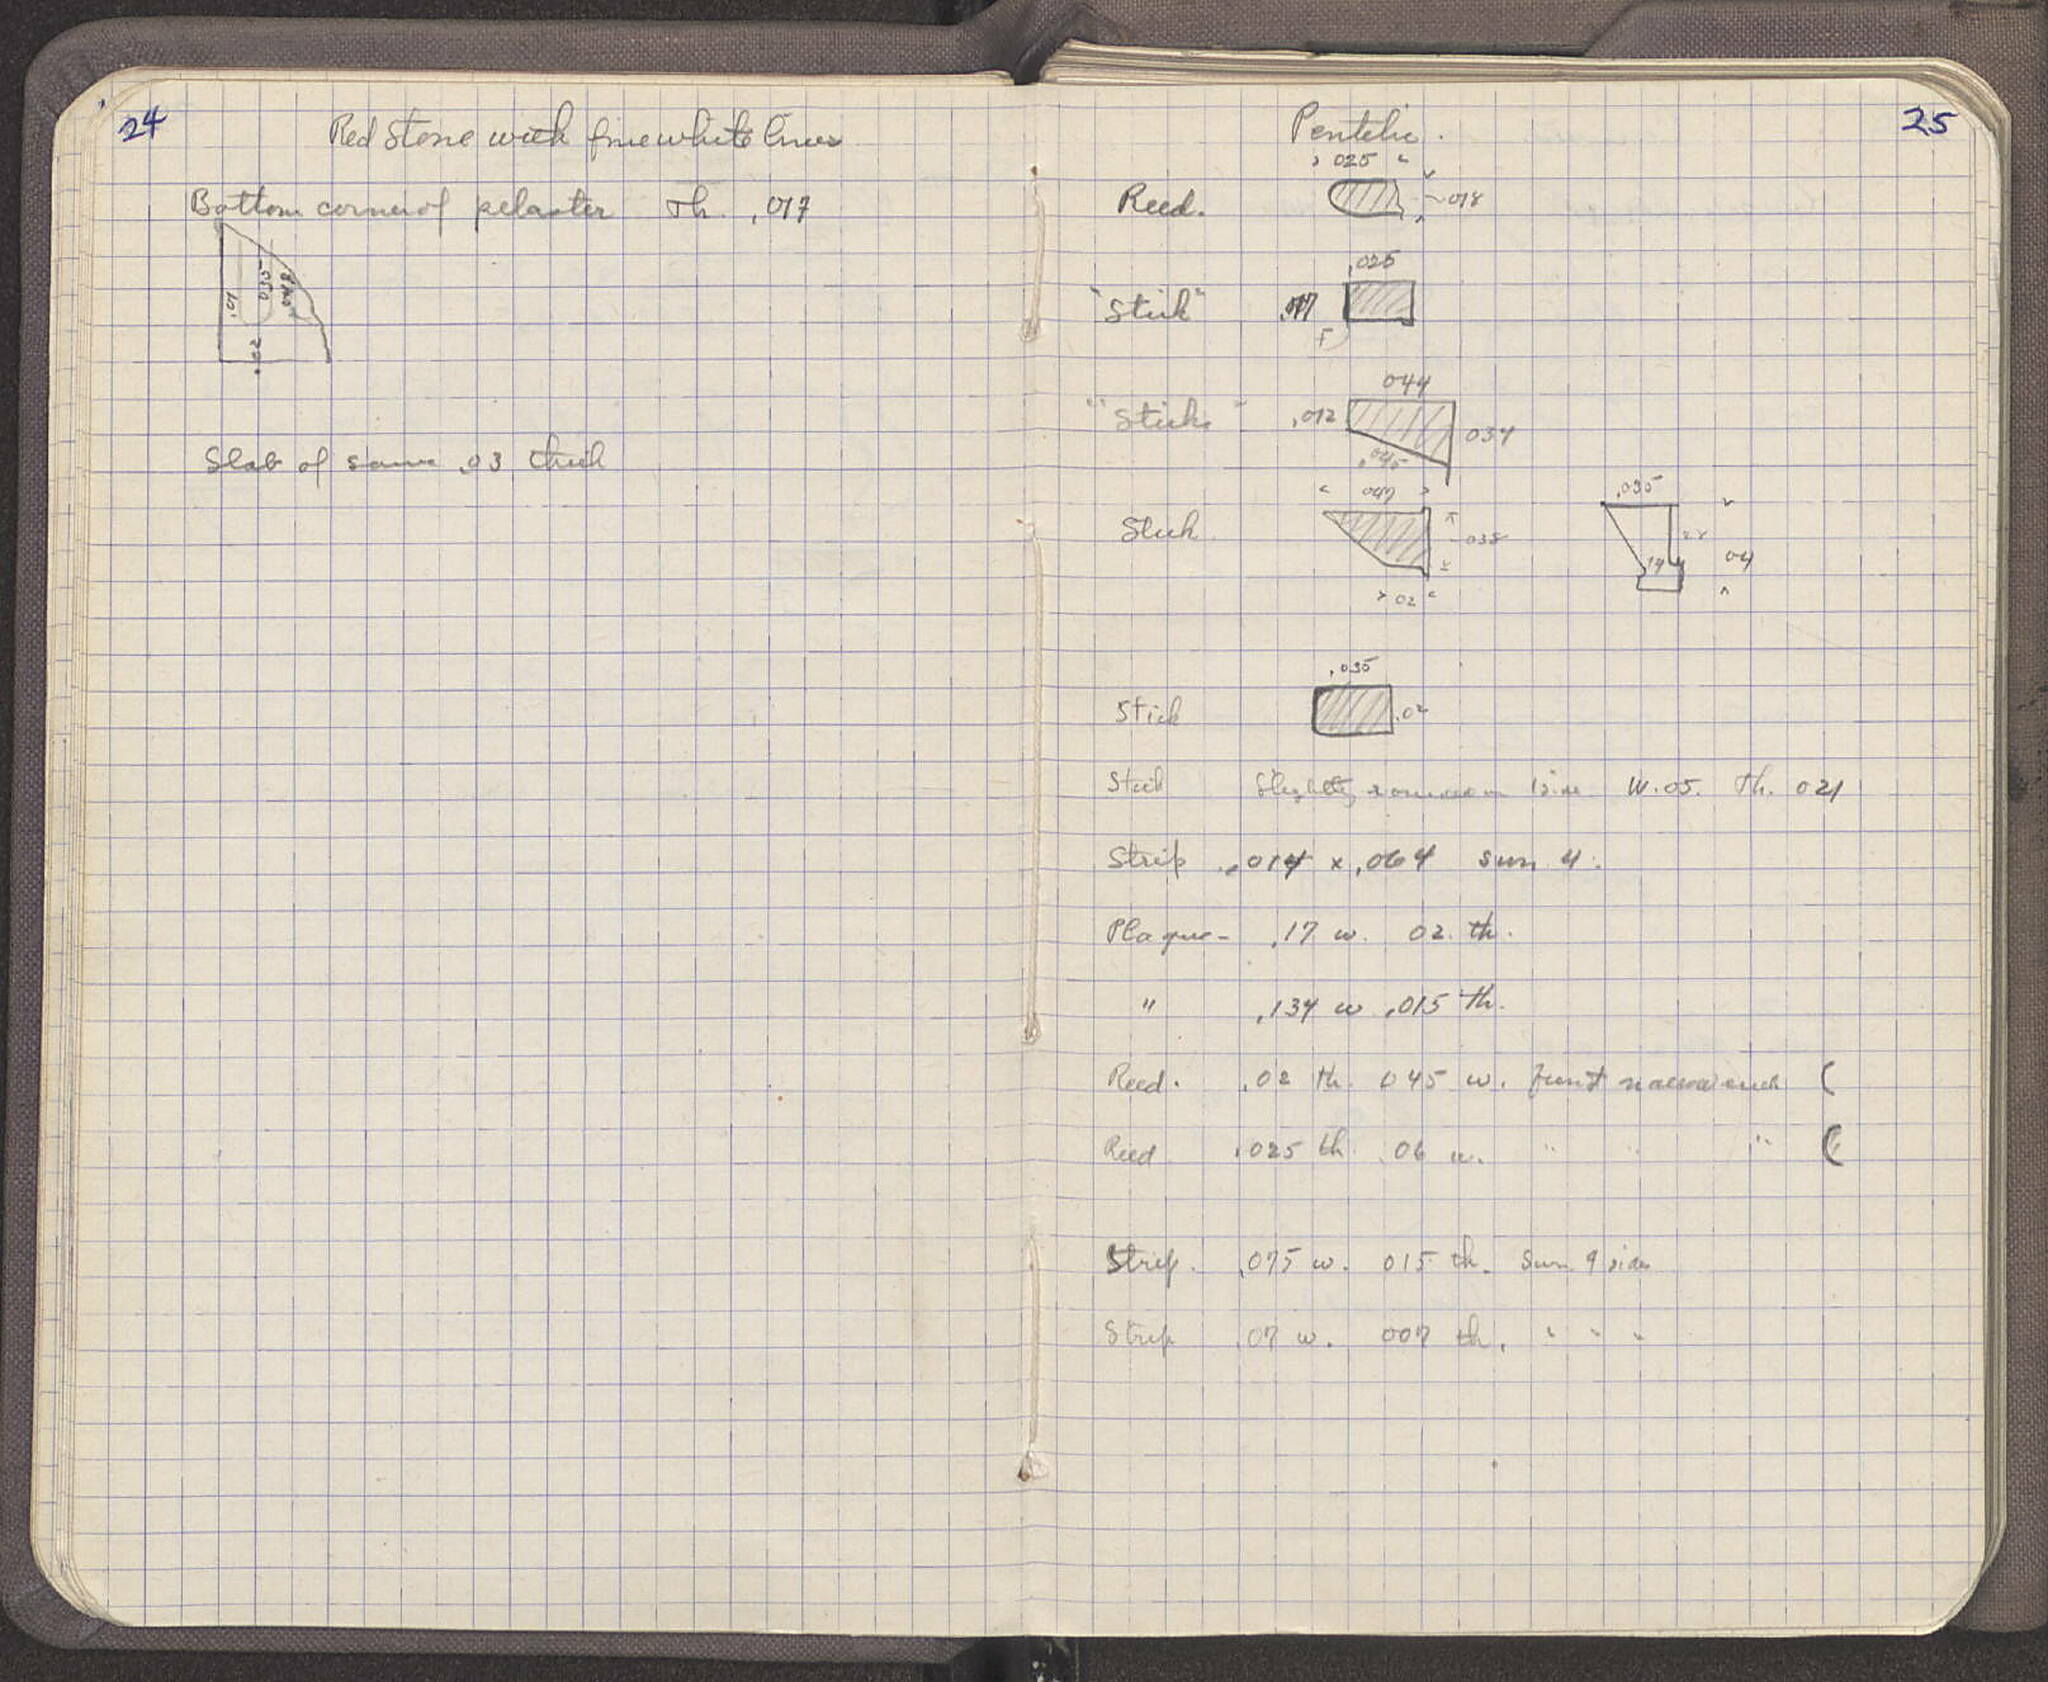 24
Red Stone with fine white lines
Bottom corner of pilaster Th. .017
.01
.050
.02
Slab of same .03 thick
25
Pentelic.
.025
Reed.
.018
.025
"Stick"
.017
F
.044
"Stick"
.012
.034
.045
.047
.035
Stick
.038
.04
14
.02
.035
Stick
.02
Stick Slightly 1 side W .05. Th. 021
Strip .014 x .064 sun 4.
Plaque - .17 w. 02. th.
" .134 w .015 th.
Reed. .02 th. 045 w. narrow
Reed .025 th. .06 w. " " "
Strip. .075 w. 015 th. Sun 4 sides
Strip .07 w. 007 th. " " "